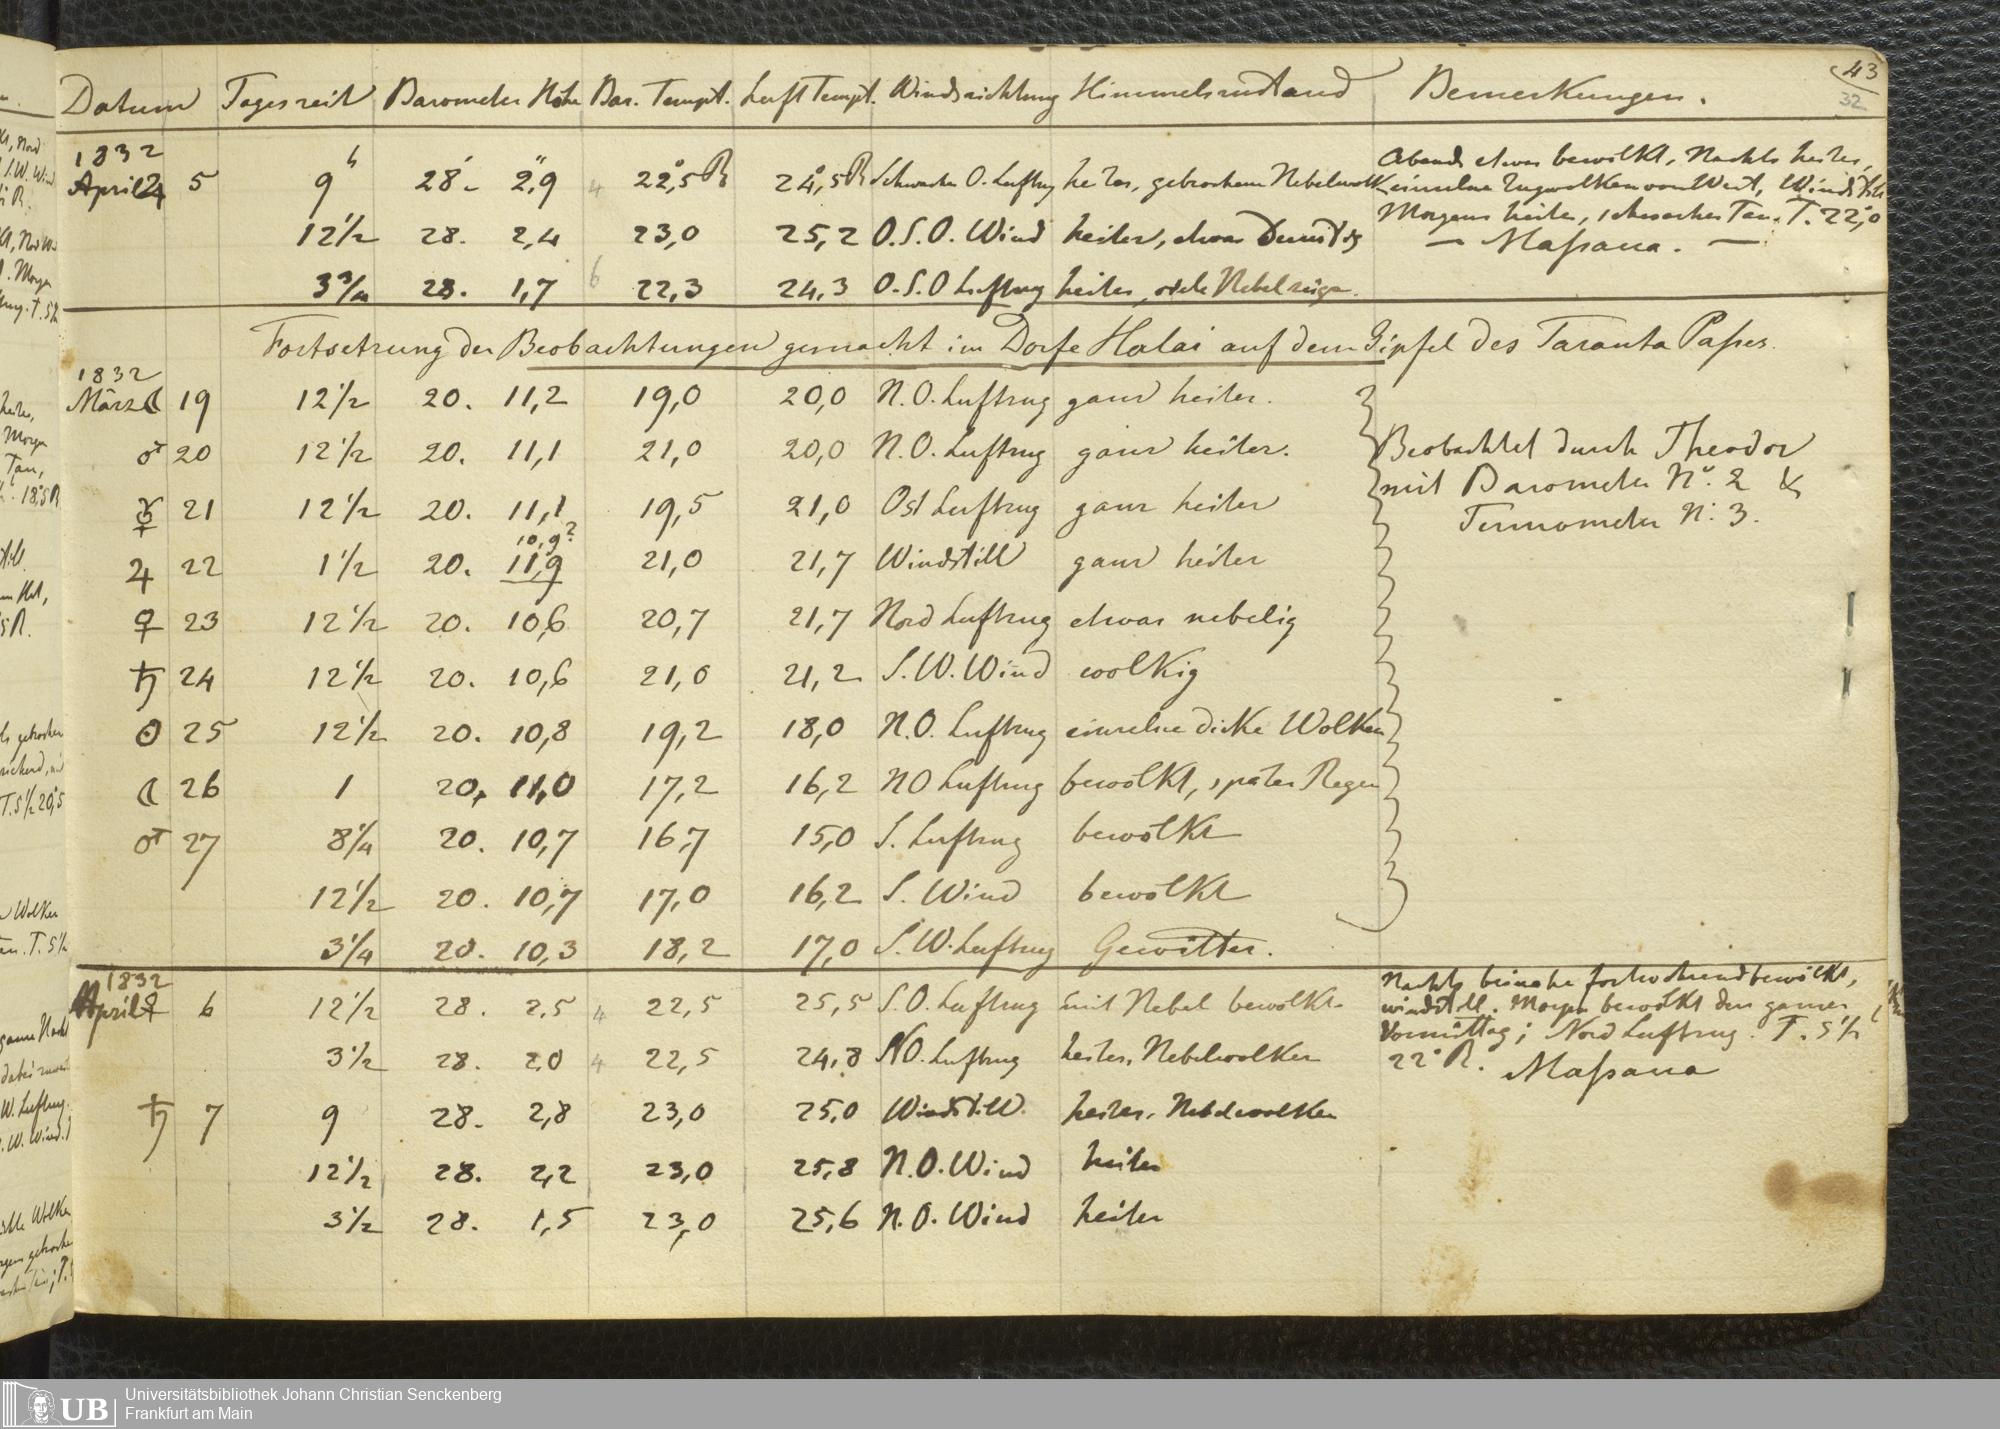 Datum Tageszeit Barometer Höhe Bar. Tempt. Luft Tempt. Windsrichtung Himmelszustand Bemerkungen. 43
32
1832
April ♃ 5 9h 28' 2,9" 4 22°,5 R 24°,5 R Schwacher O. Luftzug heiter, gebrochene Nebelwolk Abends etwas bewölkt, Nachts heiter,
einzelne Zugwolken von West, Windstill
Morgens heiter, schwacher Tau. T. 22°,0
12 1/2 28. 2,4 23,0 25,2 O.S.O. Wind heiter, etwas Dunstig — Massaua. —
3 3/4 28. 1,7 6 22,3 24,3 O.S.O Luftzug heiter, viele Nebelzüge.
Fortsetzung der Beobachtungen gemacht im Dorfe Halai auf dem Gipfel des Taranta Passes.
1832
März ☾ 19 12 1/2 20. 11,2 19,0 20,0 N.O. Luftzug ganz heiter.
♂ 20 12 1/2 20. 11,1 21,0 20,0 N.O. Luftzug ganz heiter. Beobachtet durch Theodor
mit Barometer No. 2 &
☿ 21 12 1/2 20. 11,1 19,5 21,0 Ost Luftzug ganz heiter Termometer N: 3.
10,9?
♃ 22 1 1/2 20. 11,9 21,0 21,7 Windstill ganz heiter
♀ 23 12 1/2 20. 10,6 20,7 21,7 Nord Luftzug etwas nebelig
♄ 24 12 1/2 20. 10,6 21,0 21,2 S.W. Wind wolkig
☉ 25 12 1/2 20. 10,8 19,2 18,0 N.O. Luftzug einzelne dicke Wolken
☾ 26 1 20. 11,0 17,2 16,2 NO Luftzug bewölkt, später Regen
♂ 27 8 1/4 20. 10,7 16,7 15,0 S. Luftzug bewölkt
12 1/2 20. 10,7 17,0 16,2 S. Wind bewölkt
3 1/4 20. 10,3 18,2 17,0 S.W. Luftzug Gewitter.
1832
April ♀ 6 12 1/2 28. 2,5 4 22,5 25,5 S.O. Luftzug mit Nebel bewölkt Nachts beinahe fortwährend bewölkt,
windstill. Morgen bewölkt den ganzen
Vormittag; Nord Luftzug. T. 5 1/2
3 1/2 28. 2,0 4 22,5 24,8 NO. Luftzug heiter, Nebelwolken 22° R. Massaua
♄ 7 9 28. 2,8 23,0 25,0 Windstill. heiter. Nebelwolken
12 1/2 28. 2,2 23,0 25,8 N.O. Wind heiter
3 1/2 28. 1,5 23,0 25,6 N.O. Wind heiter
UB Universitätsbibliothek Johann Christian Senckenberg
Frankfurt am Main